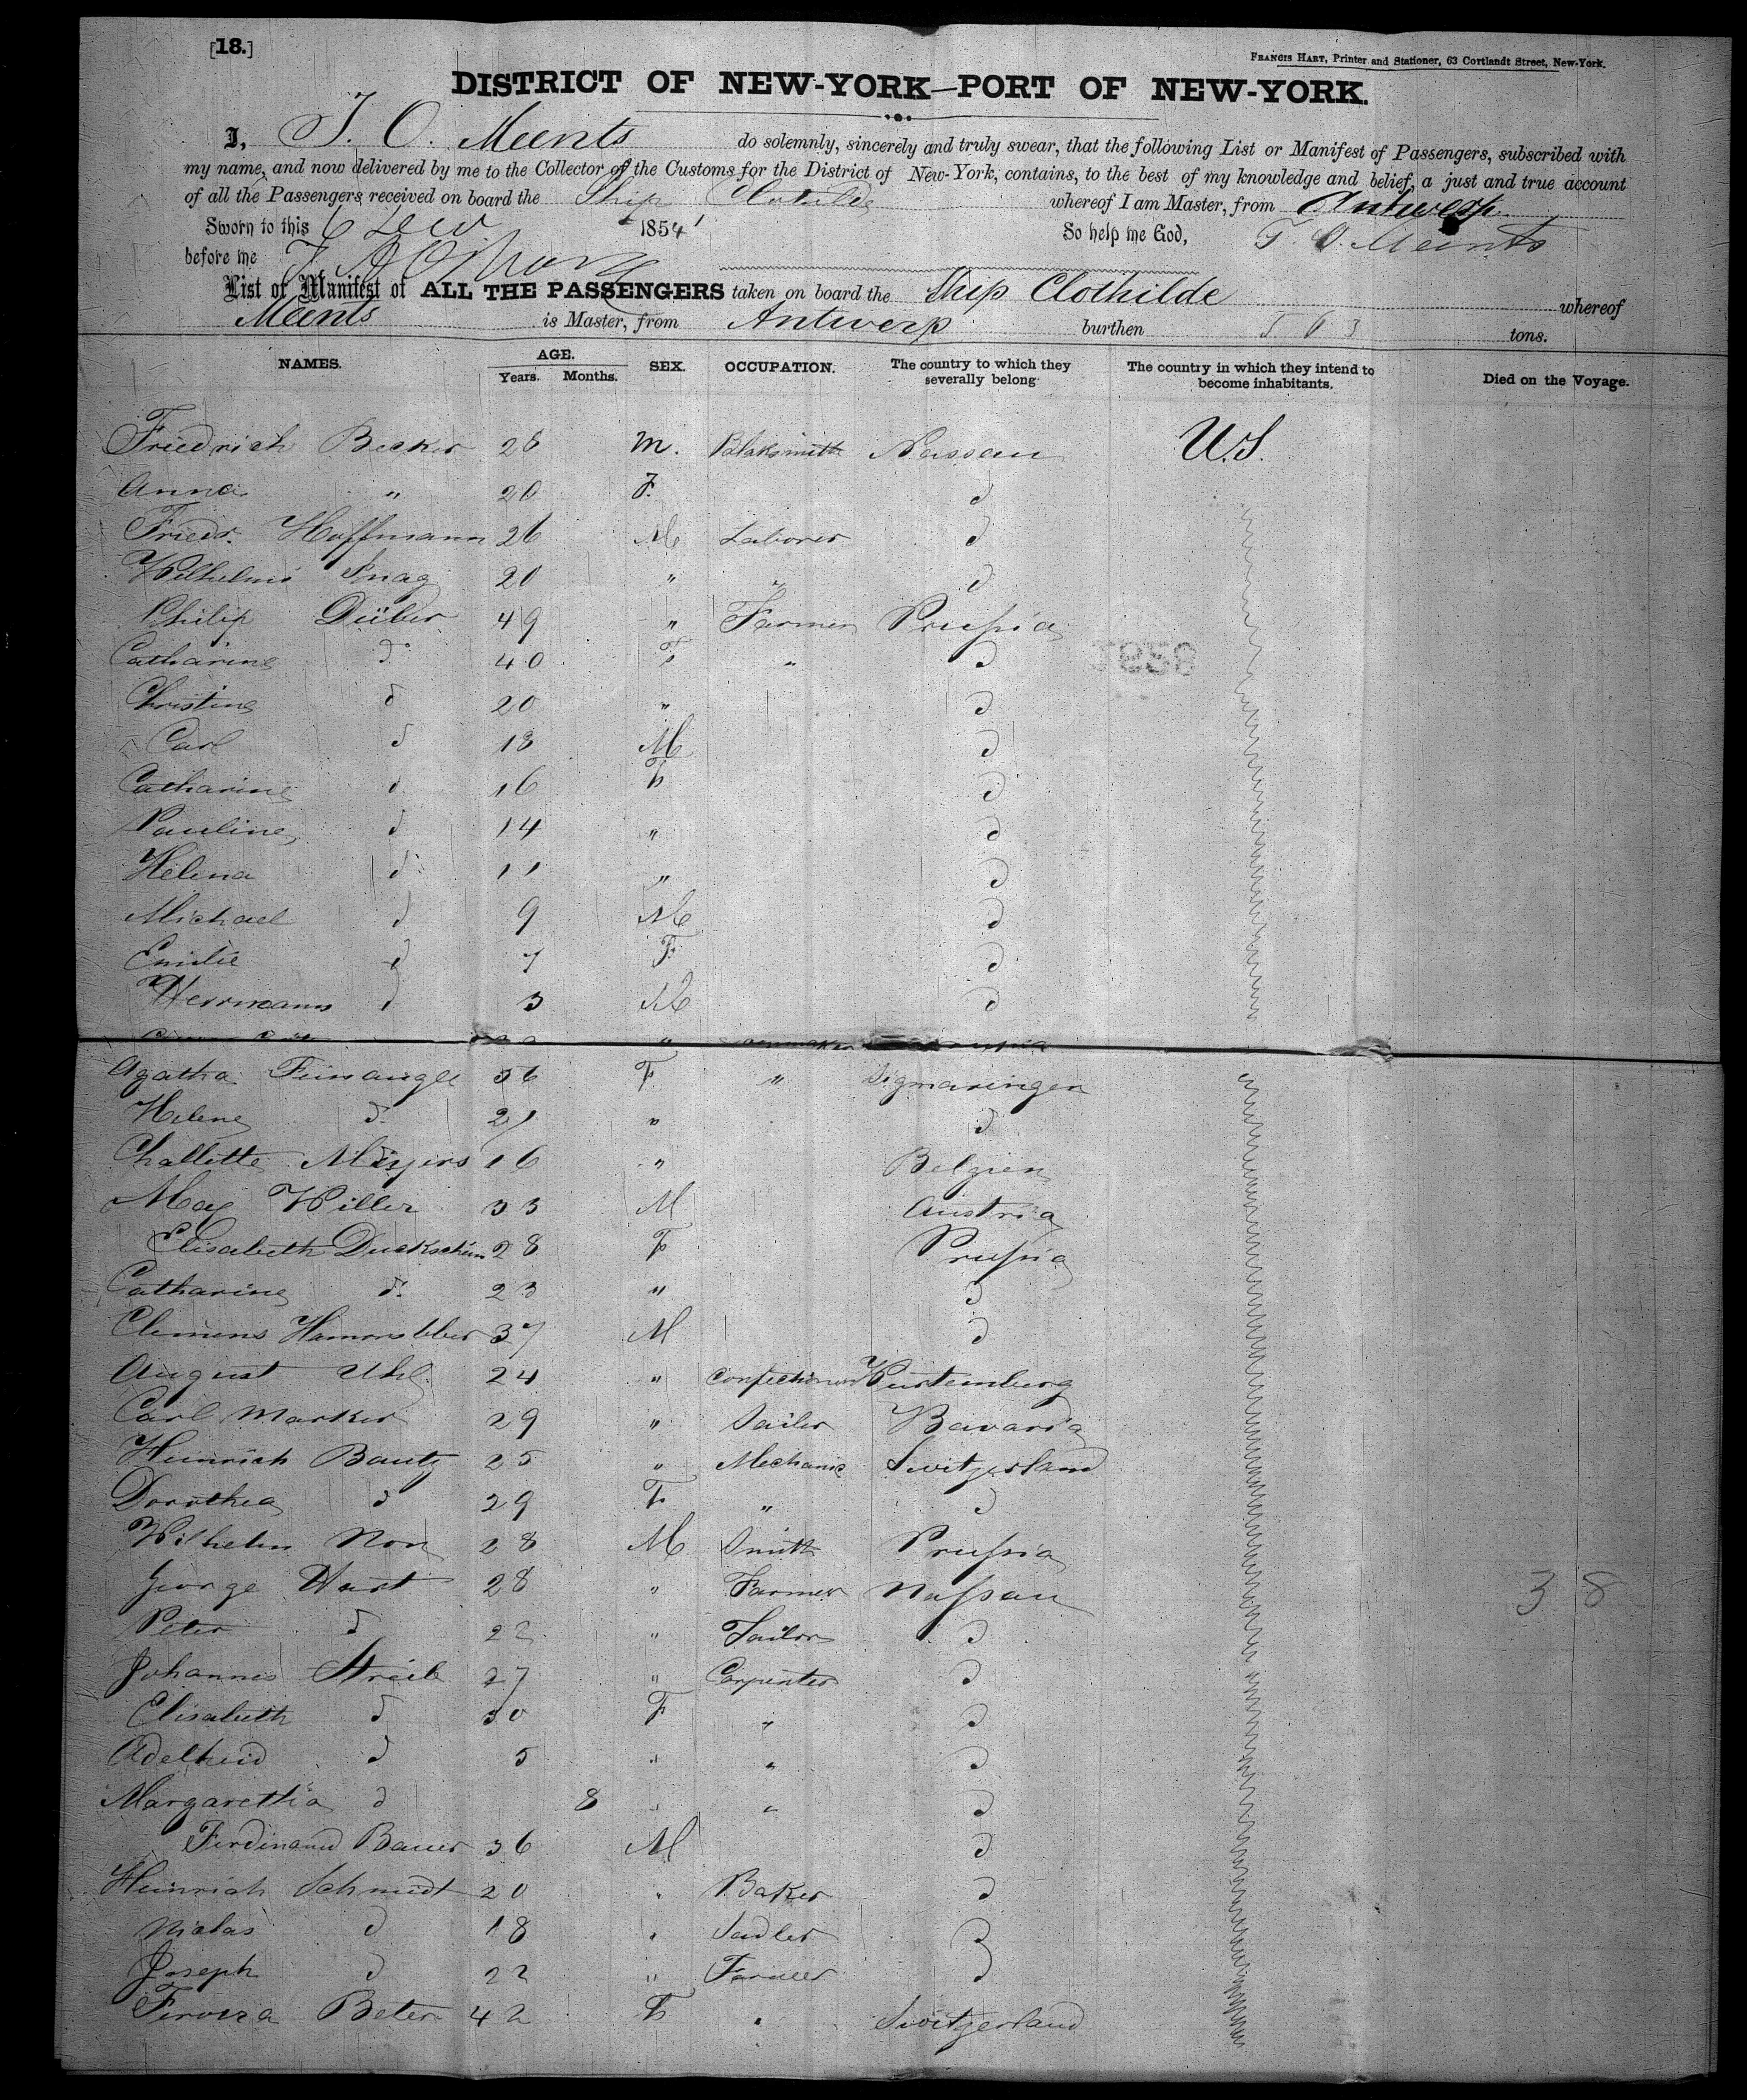 [18.]
FRANCIS HART, Printer and Stationer, 63 Cortlandt Street, New-York.
DISTRICT OF NEW-YORK—PORT OF NEW-YORK.
I, T. O. Meents do solemnly, sincerely and truly swear, that the following List or Manifest of Passengers, subscribed with
my name, and now delivered by me to the Collector of the Customs for the District of New-York, contains, to the best of my knowledge and belief, a just and true account
of all the Passengers received on board the Ship Clotilde whereof I am Master, from Antwerp
Sworn to this 6 1854 So help me God, T. O. Meents
before me
List or Manifest of ALL THE PASSENGERS taken on board the Ship Clothilde whereof
Meents is Master, from Antwerp burthen 563 tons.
NAMES. AGE. Years. Months. SEX. OCCUPATION. The country to which they severally belong The country in which they intend to become inhabitants. Died on the Voyage.
Friedrich Becker 28 M. Blaksmith Nassau U.S.
Anna " 20 F. d
Friedr. Hoffmann 26 M Laborer d
Wilhelm Snag 20 " " d
Philip Düber 49 " Farmer Prussia
Catharine d 40 F " d
1858
Christine d 20 " d
Carl d 18 M d
Catharine d 16 F d
Pauline d 14 " d
Helena d 11 " d
Michael d 9 M d
Emilie d 7 F. d
Herrmann d 3 M d
Agatha Feinaugle 56 F " Sigmaringen
Helene d. 21 " d
Challette Meyers 16 " Belgien
Max Willer 33 M Austria
Elisabeth Duckschein 28 F Prussia
Catharine d. 23 " d
Clemens 37 M d
August Uhl 24 " Confectioner Wurtemburg
Carl Marker 29 " Sailer Bavaria
Heinrich Bautz 25 " Mechanic Switzerland
Dorothea d 29 F " d
Wilhelm Non 28 M Smith Prussia
George Wust 28 " Farmer Nassau 38
Peter d 22 " Tailor d
Johannes Streib 27 " Carpenter d
Elisabeth d 30 F " d
Adelheid d 5 " " d
Margaretha d 8 " " d
Ferdinand Bauer 36 M d
Heinrich Schmidt 20 " Baker d
Niclas d 18 " Sadler d
Joseph d 22 " Farmer d
Beter 42 F " Switzerland